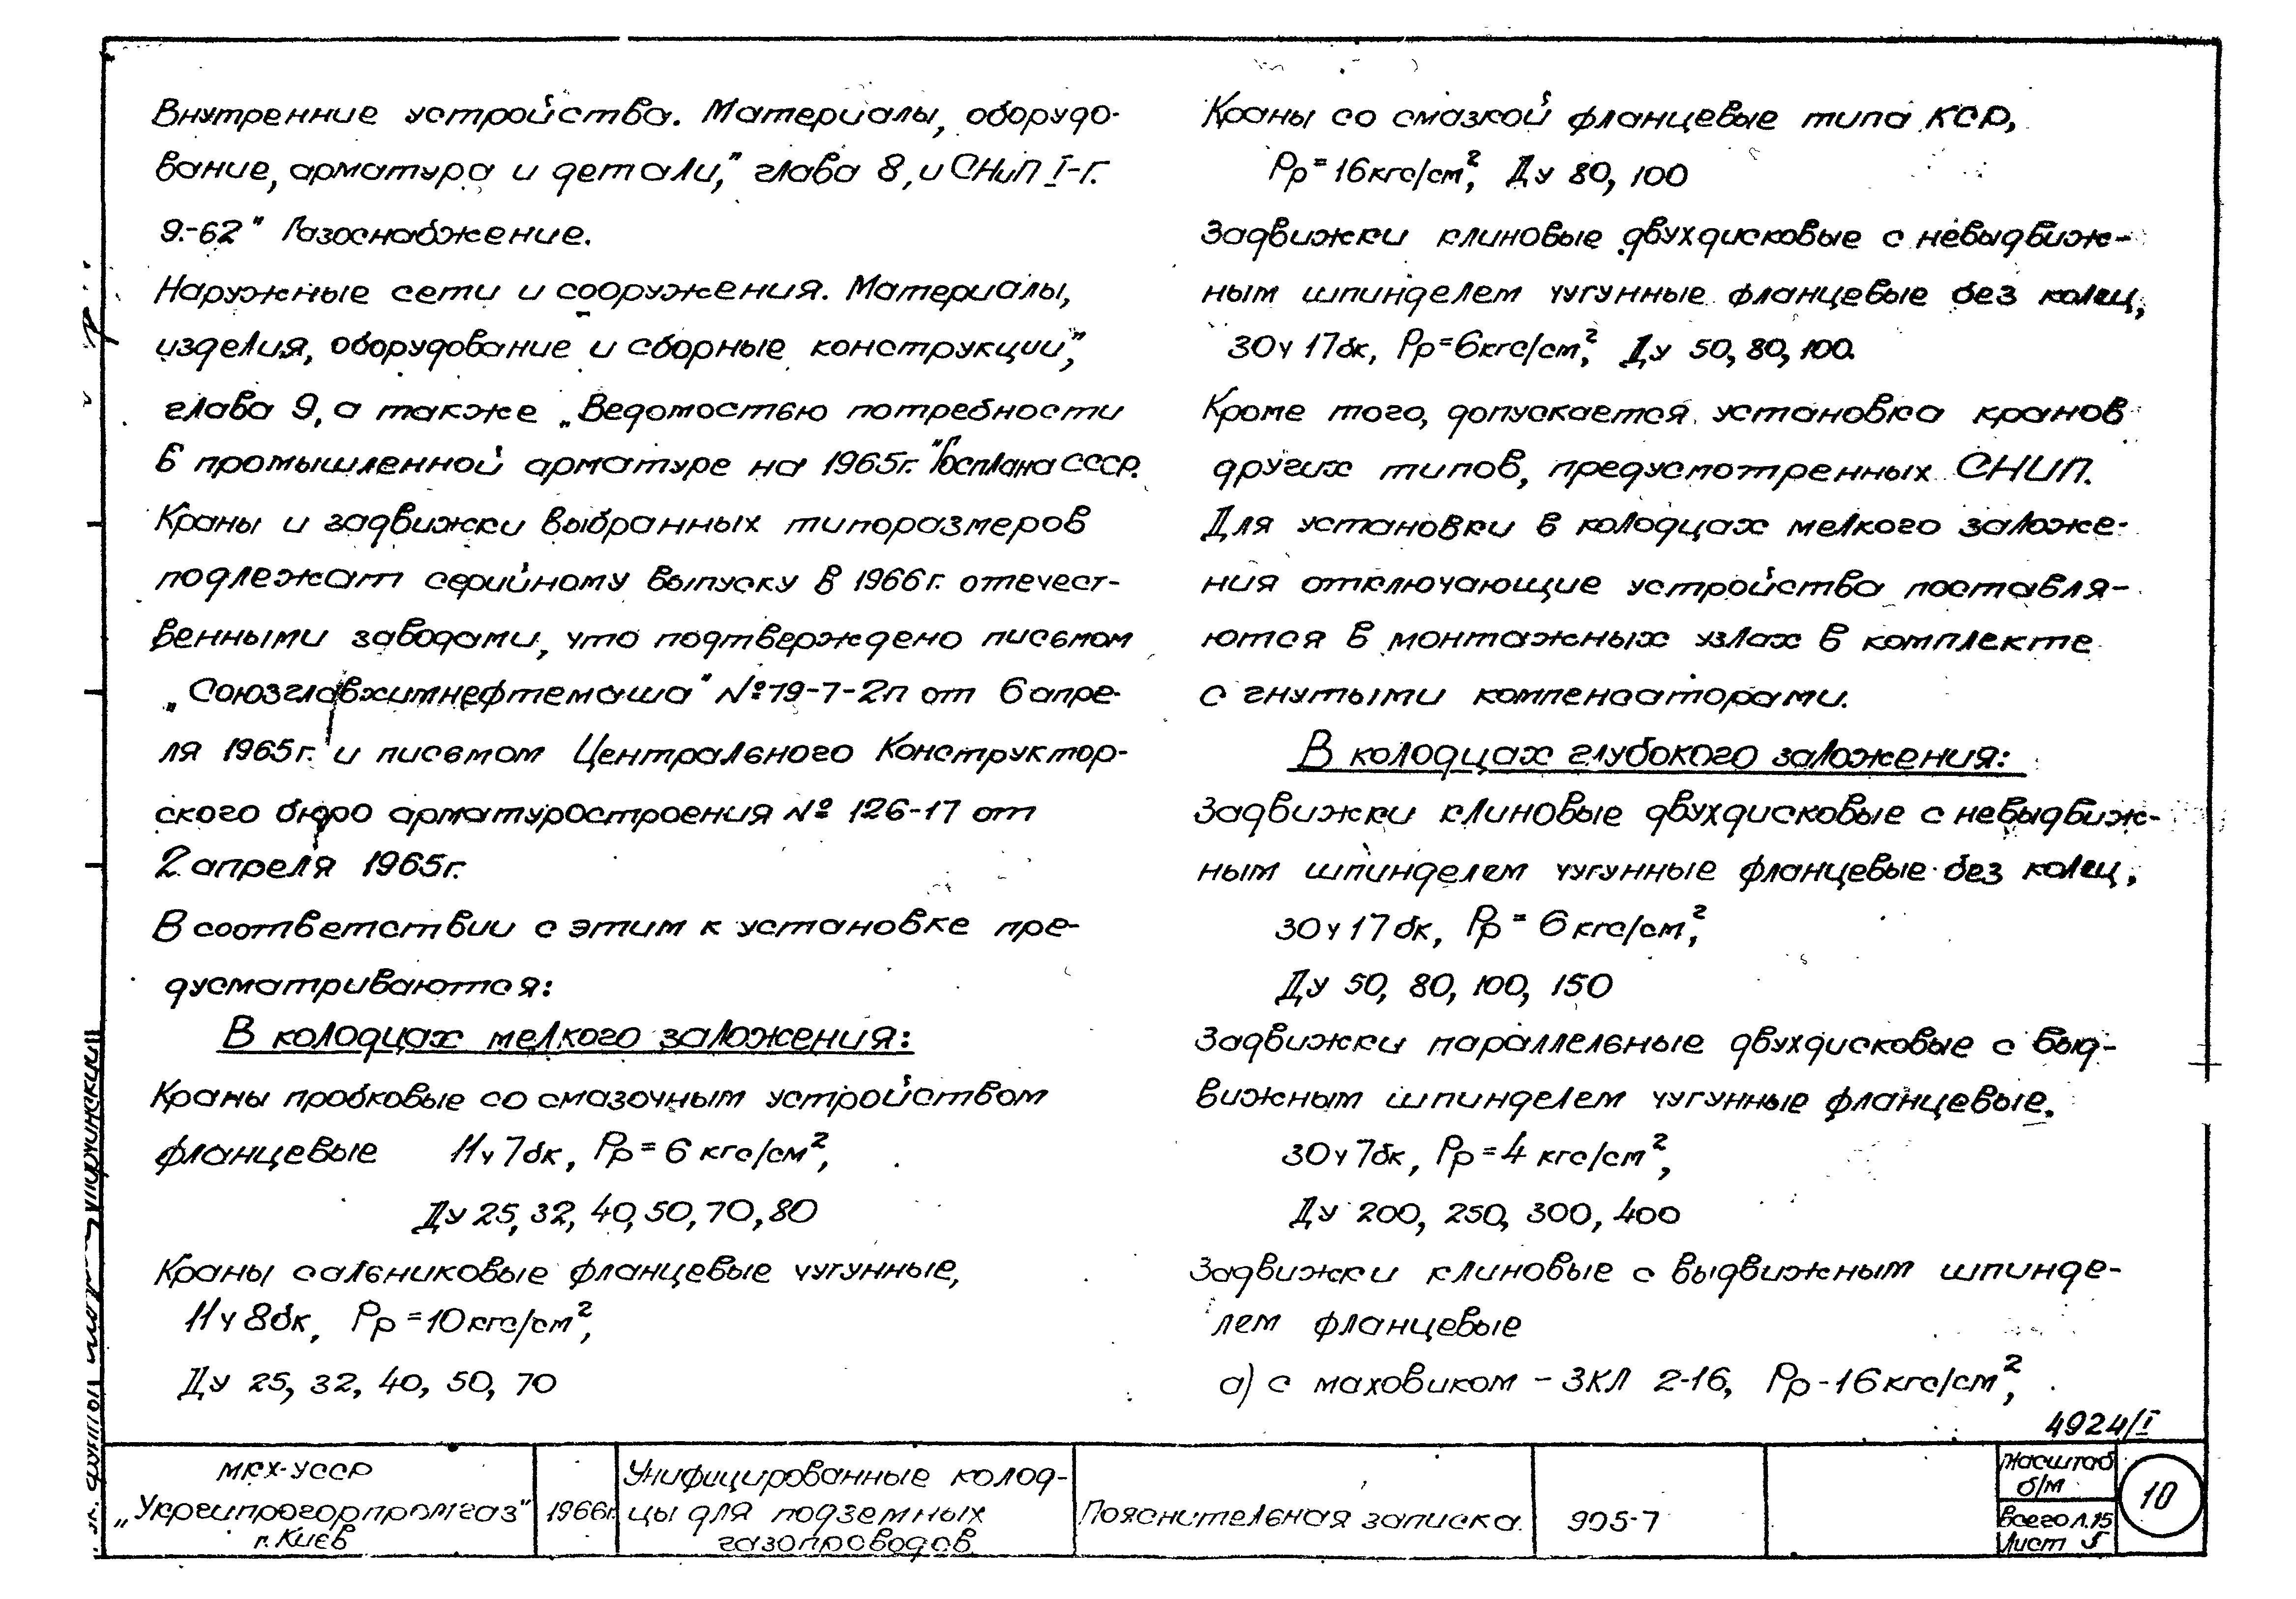 Внутренние устройства. Материалы, оборудо-
вание, арматура и детали," глава 8, и СНиП I-Г.
9.-62 " Газоснабжение.
Наружные сети и сооружения. Материалы,
изделия, оборудование и сборные конструкции,"
глава 9, а также „Ведомостью потребности
в промышленной арматуре на 1965г." Госплана СССР.
Краны и задвижки выбранных типоразмеров
подлежат серийному выпуску в 1966г. отечест-
венными заводами, что подтверждено письмом
„Союзглавхимнефтемаша" №19-7-2п от 6 апре-
ля 1965г. и письмом Центрального Конструктор-
ского бюро арматуростроения № 126-17 от
2 апреля 1965г.
В соответствии с этим к установке пре-
дусматриваются:
В колодцах мелкого заложения:
Краны пробковые со смазочным устройством
фланцевые 11ч7бк, Рр=6 кгс/см²,
Ду 25, 32, 40, 50, 70, 80
Краны сальниковые фланцевые чугунные,
11ч8бк, Рр=10кгс/см²,
Ду 25, 32, 40, 50, 70
Краны со смазкой фланцевые типа КСР,
Рр=16кгс/см², Ду 80, 100
Задвижки клиновые двухдисковые с невыдвиж-
ным шпинделем чугунные фланцевые без колец,
30ч17бк, Рр=6кгс/см², Ду 50, 80, 100.
Кроме того, допускается установка кранов
других типов, предусмотренных СНИП.
Для установки в колодцах мелкого заложе-
ния отключающие устройства поставля-
ются в монтажных узлах в комплекте
с гнутыми компенсаторами.
В колодцах глубокого заложения:
Задвижки клиновые двухдисковые с невыдвиж-
ным шпинделем чугунные фланцевые без колец,
30ч17бк, Рр=6кгс/см²,
Ду 50, 80, 100, 150
Задвижки параллельные двухдисковые с выд-
вижным шпинделем чугунные фланцевые.
30ч7бк, Рр=4 кгс/см²,
Ду 200, 250, 300, 400
Задвижки клиновые с выдвижным шпинде-
лем фланцевые
а) с маховиком - ЗКЛ 2-16, Рр-16кгс/см²,
4924/I
МКХ-УССР
„Укргипрогорпромгаз"
г. Київ
1966г.
Унифицированные колод-
цы для подземных
газопроводов
Пояснительная записка.
905-7
Масштаб
б/м
Всего л.15
Лист 5
10